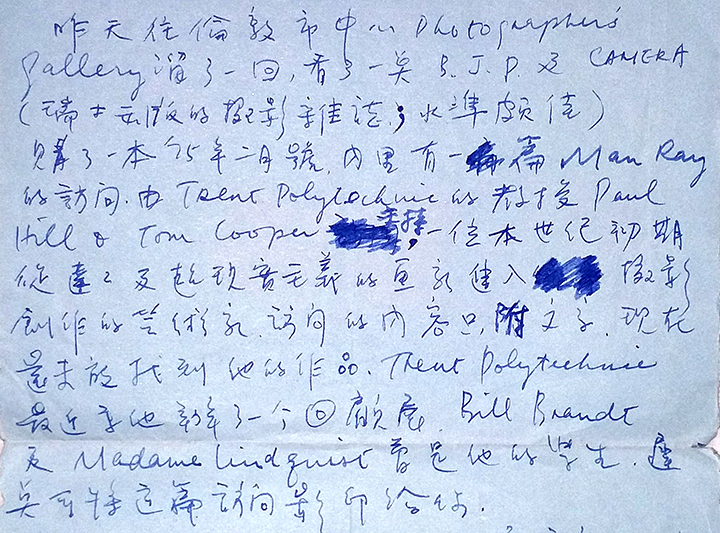 昨天在倫敦市中心 Photographers'
Gallery 溜了一回，看了一些 B.J.P. 及 CAMERA
(瑞士出版的攝影雜誌；水準頗佳)
購了一本75年二月號，內里有一篇 Man Ray
的訪问．由 Trent Polytechnic 的教授 Paul
Hill & Tom Cooper 主持，一位本世纪初期
從達达及超现實主義的画家進入攝影
創作的芸術家．訪问的內容只附文字．现在
還未能找到他的作品．Trent Polytechnic
最近為他辦了一个回顧展．Bill Brandt
及 Madame Lindquist 曾是他的學生．遲
些可將這篇訪问影印給你．